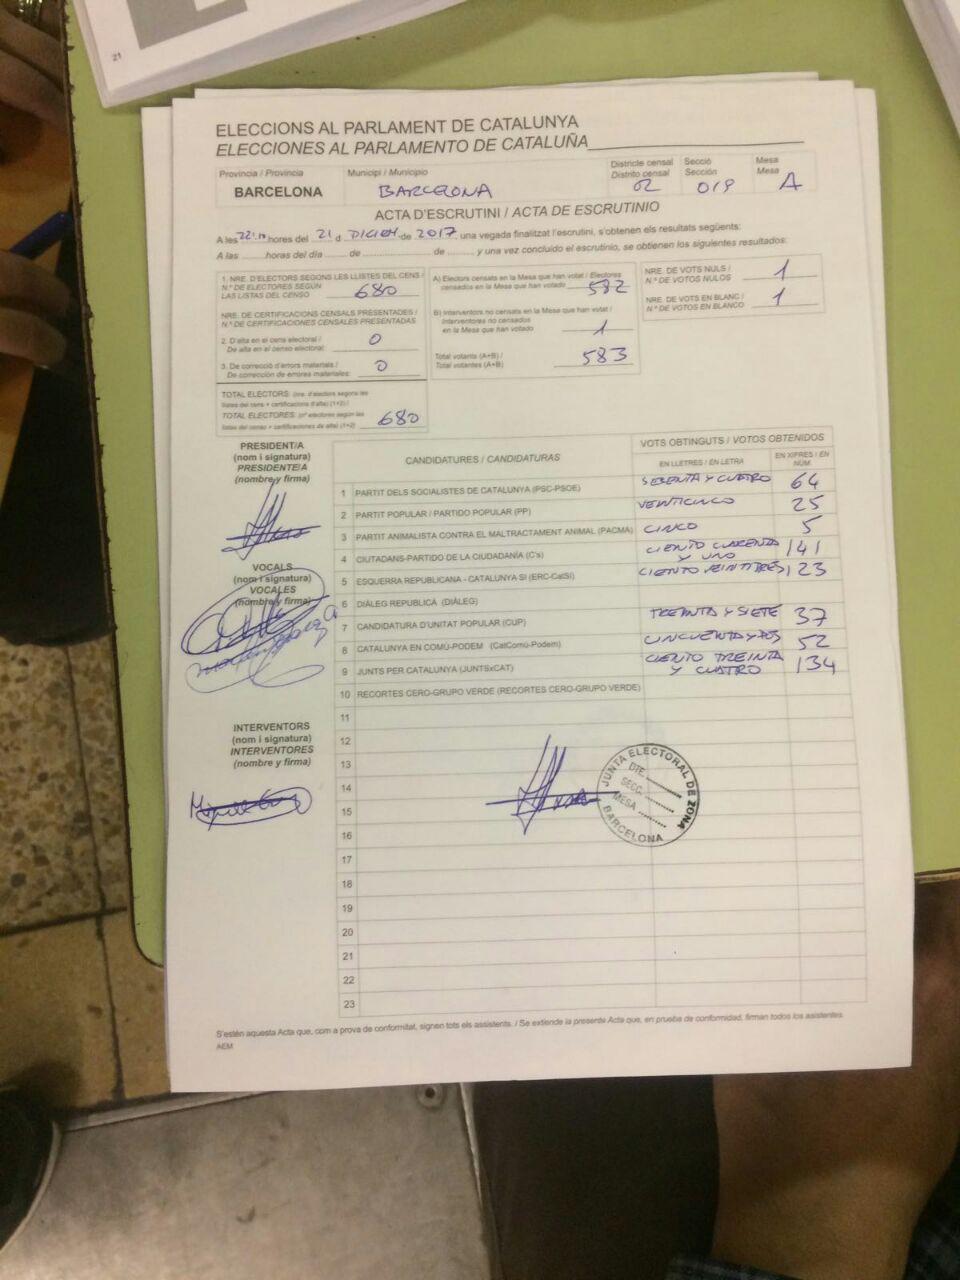 21
ELECCIONS AL PARLAMENT DE CATALUNYA
ELECCIONES AL PARLAMENTO DE CATALUÑA
Provincia / Provincia
BARCELONA
Municipi / Municipio
BARCELONA
Districte censal
Distrito censal
02
Secció
Sección
019
Mesa
Mesa
A
ACTA D'ESCRUTINI / ACTA DE ESCRUTINIO
A les hores del 21 d DICIEM de 2017, una vegada finalitzat l'escrutini, s'obtenen els resultats següents:
A las ......... horas del día ...... de ............ de ........, y una vez concluido el escrutinio, se obtienen los siguientes resultados:
1. NRE. D'ELECTORS SEGONS LES LLISTES DEL CENS /
N.º DE ELECTORES SEGÚN
LAS LISTAS DEL CENSO 680
NRE. DE CERTIFICACIONS CENSALS PRESENTADES /
N.º DE CERTIFICACIONES CENSALES PRESENTADAS
2. D'alta en el cens electoral /
De alta en el censo electoral: 0
3. De correcció d'errors materials /
De corrección de errores materiales: 0
TOTAL ELECTORS: (nre. d'electors segons les
llistes del cens + certificacions d'alta) (1+2) /
TOTAL ELECTORES: (nº electores según las
listas del censo + certificaciones de alta) (1+2) 680
A) Electors censats en la Mesa que han votat / Electores
censados en la Mesa que han votado 582
B) Interventors no censats en la Mesa que han votat /
Interventores no censados
en la Mesa que han votado 1
Total votants (A+B) /
Total votantes (A+B) 583
NRE. DE VOTS NULS /
N.º DE VOTOS NULOS 1
NRE. DE VOTS EN BLANC /
N.º DE VOTOS EN BLANCO 1
PRESIDENT/A
(nom i signatura)
PRESIDENTE/A
(nombre y firma)
VOCALS
(nom i signatura)
VOCALES
(nombre y firma)
INTERVENTORS
(nom i signatura)
INTERVENTORES
(nombre y firma)
CANDIDATURES / CANDIDATURAS
VOTS OBTINGUTS / VOTOS OBTENIDOS
EN LLETRES / EN LETRA
EN XIFRES / EN NÚM.
1 PARTIT DELS SOCIALISTES DE CATALUNYA (PSC-PSOE) Y CUATRO 64
2 PARTIT POPULAR / PARTIDO POPULAR (PP) VEINTICINCO 25
3 PARTIT ANIMALISTA CONTRA EL MALTRACTAMENT ANIMAL (PACMA) CINCO 5
4 CIUTADANS-PARTIDO DE LA CIUDADANÍA (C's) CIENTO CUARENTA Y UNO 141
5 ESQUERRA REPUBLICANA - CATALUNYA SÍ (ERC-CatSí) CIENTO VEINTITRES 123
6 DIÀLEG REPUBLICÀ (DIÀLEG)
7 CANDIDATURA D'UNITAT POPULAR (CUP) TREINTA Y SIETE 37
8 CATALUNYA EN COMÚ-PODEM (CatComú-Podem) CINCUENTA Y DOS 52
9 JUNTS PER CATALUNYA (JUNTSxCAT) CIENTO TREINTA Y CUATRO 134
10 RECORTES CERO-GRUPO VERDE (RECORTES CERO-GRUPO VERDE)
11
12
13
14
15
16
17
18
19
20
21
22
23
JUNTA ELECTORAL DE ZONA
DTE.
SECC.
MESA
BARCELONA
S'estén aquesta Acta que, com a prova de conformitat, signen tots els assistents. / Se extiende la presente Acta que, en prueba de conformidad, firman todos los asistentes
AEM